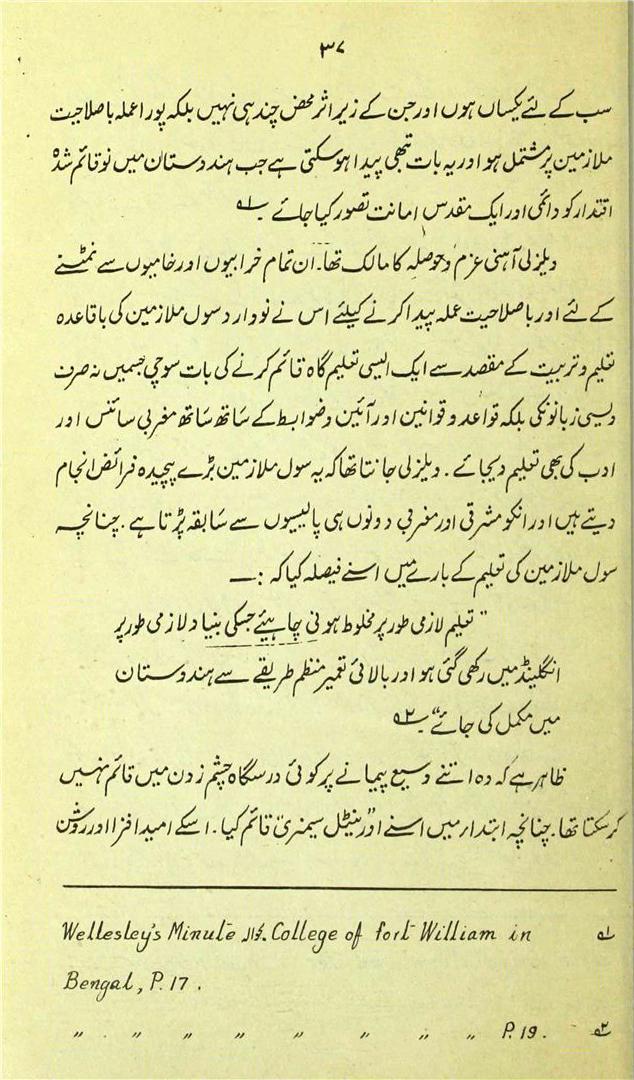 ۳۷
سب کے لئے یکساں ہوں اور جن کے زیر اثر محض چند ہی نہیں بلکہ پورا عملہ باصلاحیت
ملازمین پر مشتمل ہو اور یہ بات تبھی پیدا ہو سکتی ہے جب ہندوستان میں نو قائم شدہ
اقتدار کو دائمی اور ایک مقدس امانت تصور کیا جائے ۔ ؎۱
ویلزلی آہنی عزم و حوصلہ کا مالک تھا۔ ان تمام خرابیوں اور خامیوں سے نمٹنے
کے لئے اور باصلاحیت عملہ پیدا کرنے کیلئے اس نے نووارد سول ملازمین کی باقاعدہ
تعلیم و تربیت کے مقصد سے ایک ایسی تعلیم گاہ قائم کرنے کی بات سوچی جسمیں نہ صرف
دیسی زبانونکی بلکہ قواعد و قوانین اور آئین و ضوابط کے ساتھ ساتھ مغربی سائنس اور
ادب کی بھی تعلیم دیجائے ۔ ویلزلی جانتا تھا کہ یہ سول ملازمین بڑے پیچیدہ فرائض انجام
دیتے ہیں اور انکو مشرقی اور مغربی دونوں ہی پالیسیوں سے سابقہ پڑتا ہے ۔ چنانچہ
سول ملازمین کی تعلیم کے بارے میں اسنے فیصلہ کیا کہ :—
" تعلیم لازمی طور پر مخلوط ہونی چاہیئے جسکی بنیاد لازمی طور پر
انگلینڈ میں رکھی گئی ہو اور بالائی تعمیر منظم طریقے سے ہندوستان
میں مکمل کی جائے" ۔ ؎۲
ظاہر ہے کہ وہ اتنے وسیع پیمانے پر کوئی درسگاہ چشم زدن میں قائم نہیں
کر سکتا تھا ۔ چنانچہ ابتداء میں اسنے "اورینٹل سیمنری" قائم کیا ۔ اسکے امید افزا اور روشن
؎۱ Wellesley's Minute بحوالہ College of fort William in
Bengal, P. 17 .
؎۲ " " " " " " " " P. 19 .